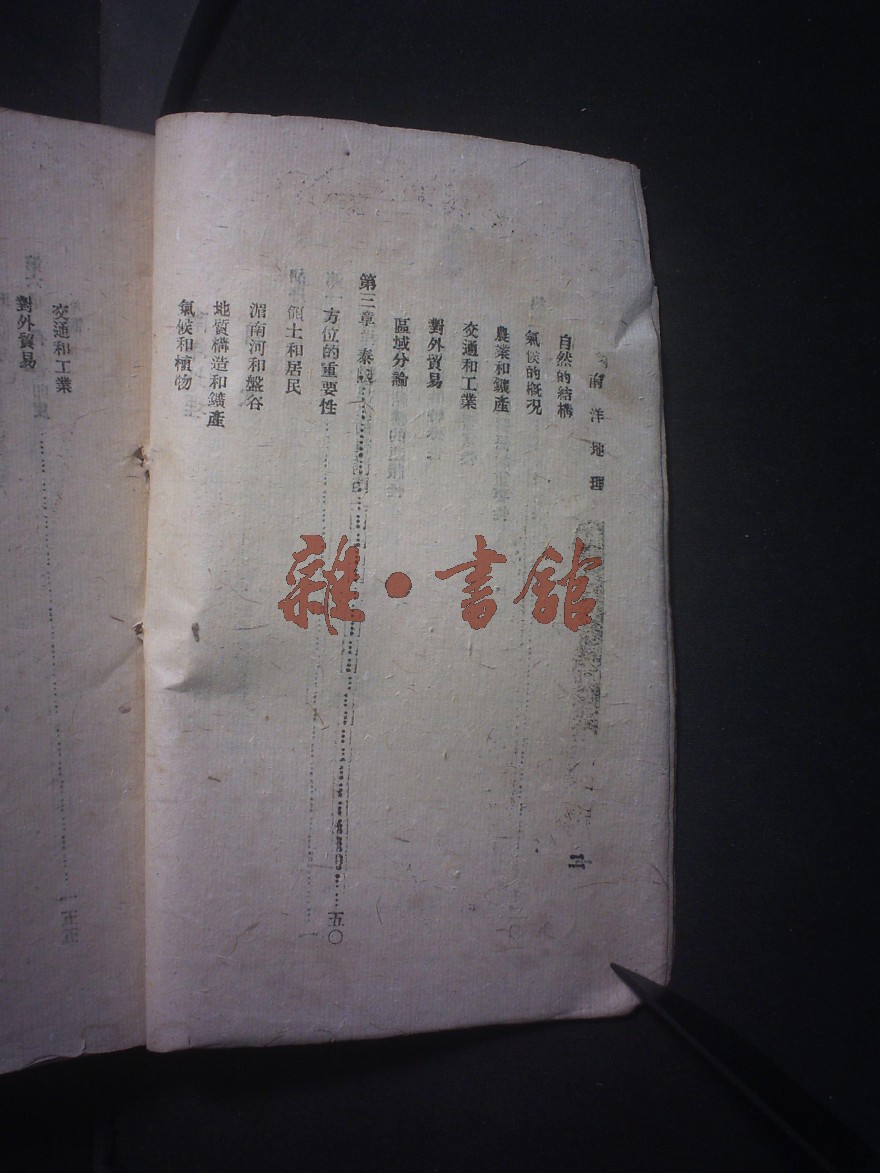 南洋地理
二
自然的結構
氣候的概況
農業和鑛產
交通和工業
對外貿易
區域分論
第三章 泰國……五〇
方位的重要性
領土和居民
湄南河和盤谷
地質構造和鑛產
氣候和植物
交通和工業
對外貿易
雜·書館